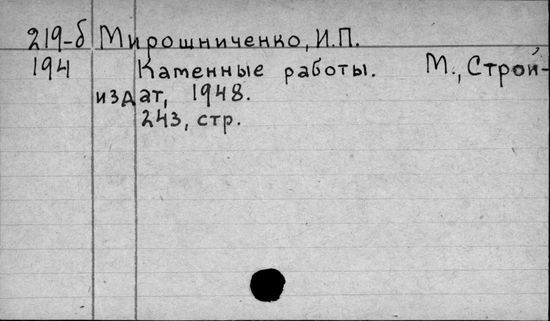 219-б Мирошниченко, И.П.
194 Каменные работы. М., Строй-
издат, 1948.
243, стр.